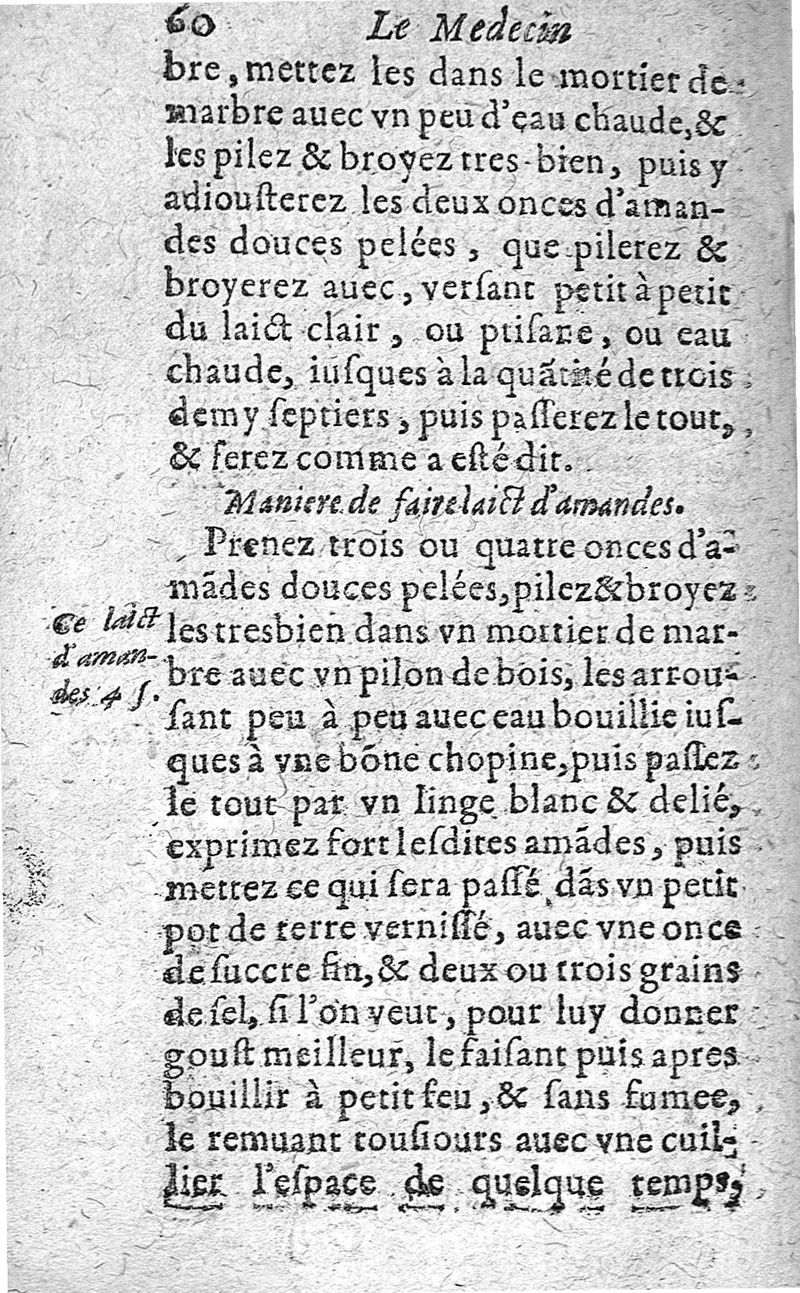 60 Le Medecin
bre, mettez les dans le mortier de
marbre auec vn peu d'eau chaude, &
les pilez & broyez tres-bien, puis y
adiouſterez les deux onces d'aman-
des douces pelées, que pilerez &
broyerez auec, verſant petit à petit
du laict clair, ou ptiſane, ou eau
chaude, iuſques à la quãtité de trois
demy ſeptiers, puis paſſerez le tout,
& ferez comme a eſté dit.
Maniere de faire laict d'amandes.
Prenez trois ou quatre onces d'a-
mãdes douces pelées, pilez & broyez
Ce laict
d'aman-
des 4 ſ.
les tresbien dans vn mortier de mar-
bre auec vn pilon de bois, les arrou-
ſant peu à peu auec eau bouillie iuſ-
ques à vne bõne chopine, puis paſſez
le tout par vn linge blanc & delié,
exprimez fort leſdites amãdes, puis
mettez ce qui ſera paſſé dãs vn petit
pot de terre verniſſé, auec vne once
de ſuccre fin, & deux ou trois grains
de ſel, ſi l'on veut, pour luy donner
gouſt meilleur, le faiſant puis apres
bouillir à petit feu, & ſans fumee,
le remuant touſiours auec vne cuil-
lier l'eſpace de quelque temps,